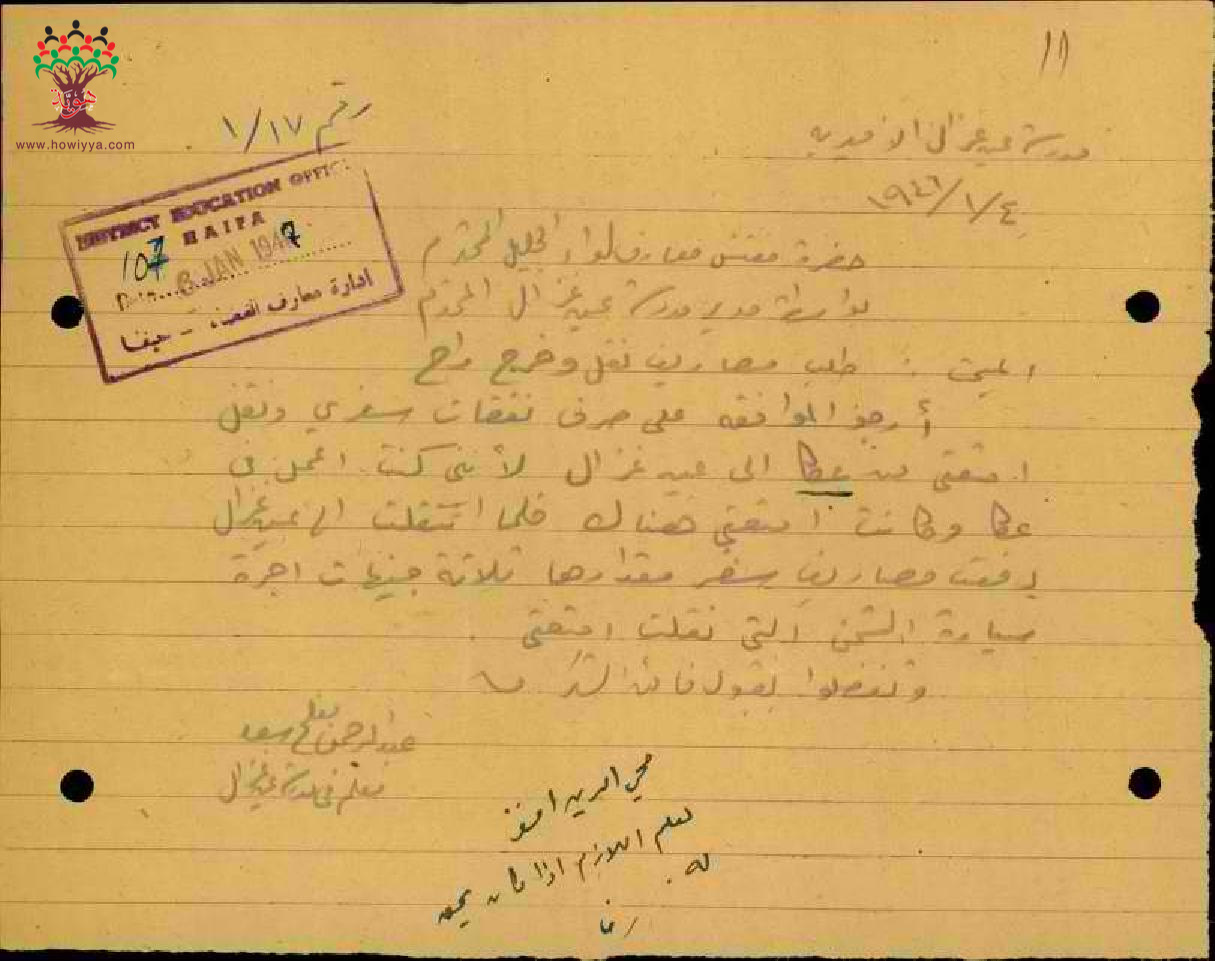 ١١
هوية
www.howiyya.com
رقم ١/١٧
مدرسة عين غزال الأميرية
١٩٤٦/١/٤
DISTRICT EDUCATION OFFICE
HAIFA
107
Date... 6 JAN 1947
ادارة معارف القضاء - حيفا
حضرة مفتش معارف لواء الجليل المحترم
بواسطة مدير مدرسة عين غزال المحترم
طلب مصاريف نقل وخرج راح
أرجو الموافقة على صرف نفقات سفري ونقل
امتعتي من عكا الى عين غزال لأنني كنت اعمل في
عكا وكانت امتعتي هناك فلما انتقلت الى عين غزال
دفعت مصاريف سفر مقدارها ثلاثة جنيهات اجرة
سيارة الشحن التي نقلت امتعتي .
وتفضلوا بقبول فائق الشكر
عبد الرحمن
معلم في مدرسة عين غزال
محي الدين افندي
اللازم اذا كان يحق
له .